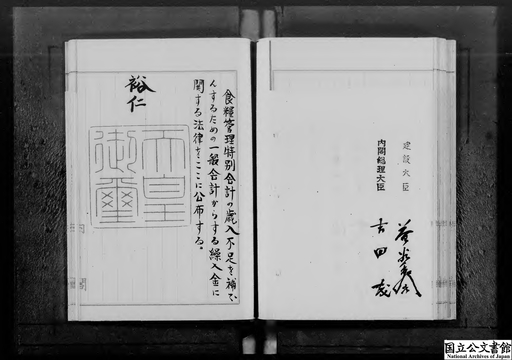 建設大臣
内閣総理大臣 吉田茂
食糧管理特別会計の歳入不足を補て
んするための一般会計からする繰入金に
関する法律をここに公布する。
裕仁
天皇
御璽
国立公文書館
National Archives of Japan